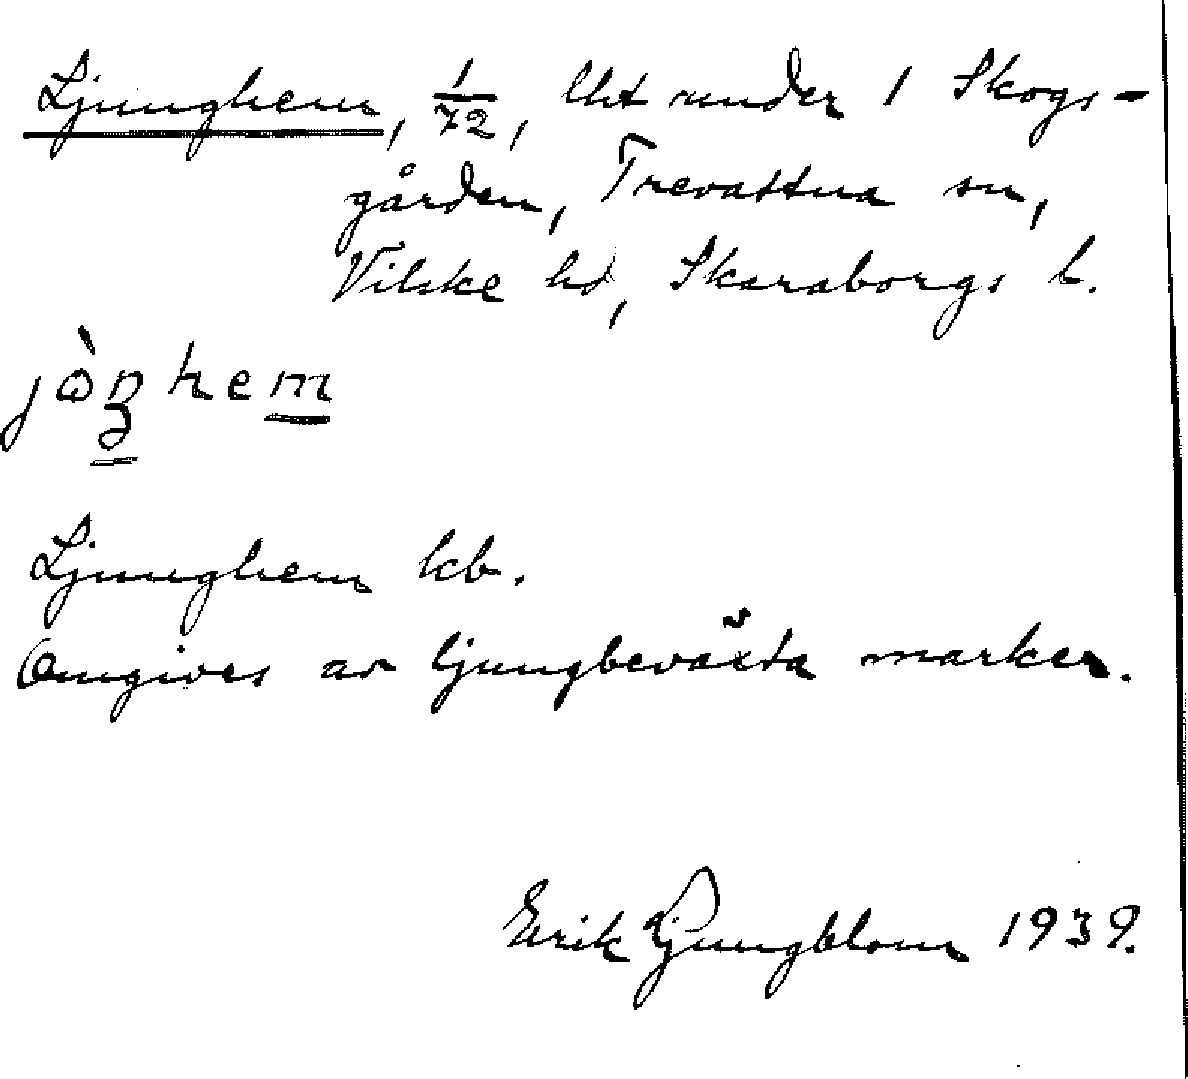 Ljunghem, 1/72, lht under 1 Skogs-
gården, Trevattna sn,
Vilske hd, Skaraborgs l.
jòŋhem
Ljunghem kb.
Omgives av ljungbeväxta marker.
Erik Ljungblom 1939.